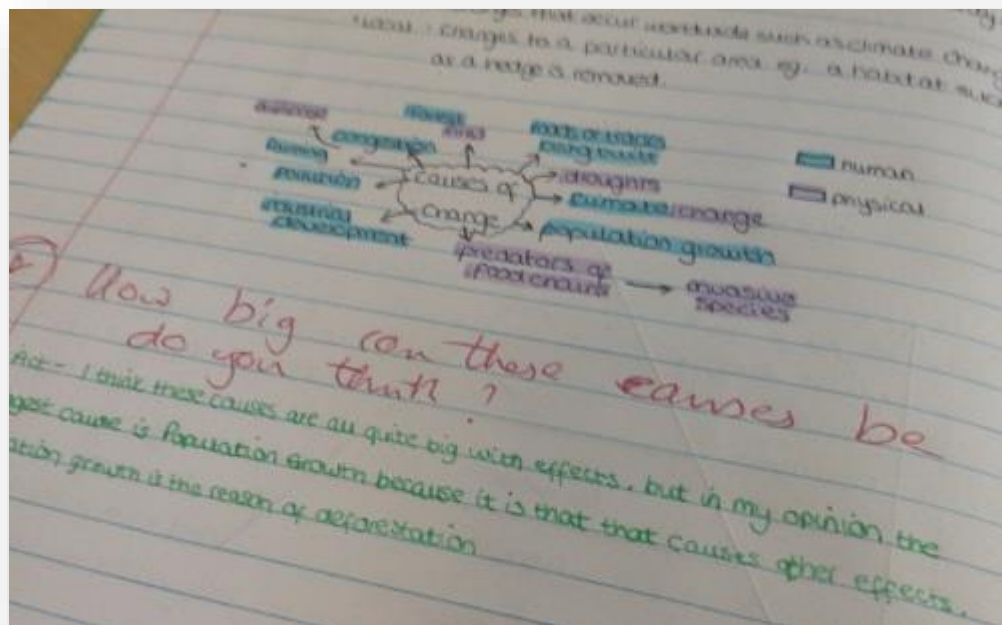 that occur worldwide such as climate chang
local : changes to a particular area eg. a habitat suc
as a hedge is removed.
forest
fires
roads or tracks
being built
congestion
farming
pollution
industrial
development
causes of
change
droughts
climate change
population growth
predators or
food chains
invasive
species
human
physical
How big can these causes be
do you think?
Act - I think these causes are all quite big with effects. but in my opinion the
gest cause is Population Growth because it is that that causes other effects.
ation growth is the reason of deforestation